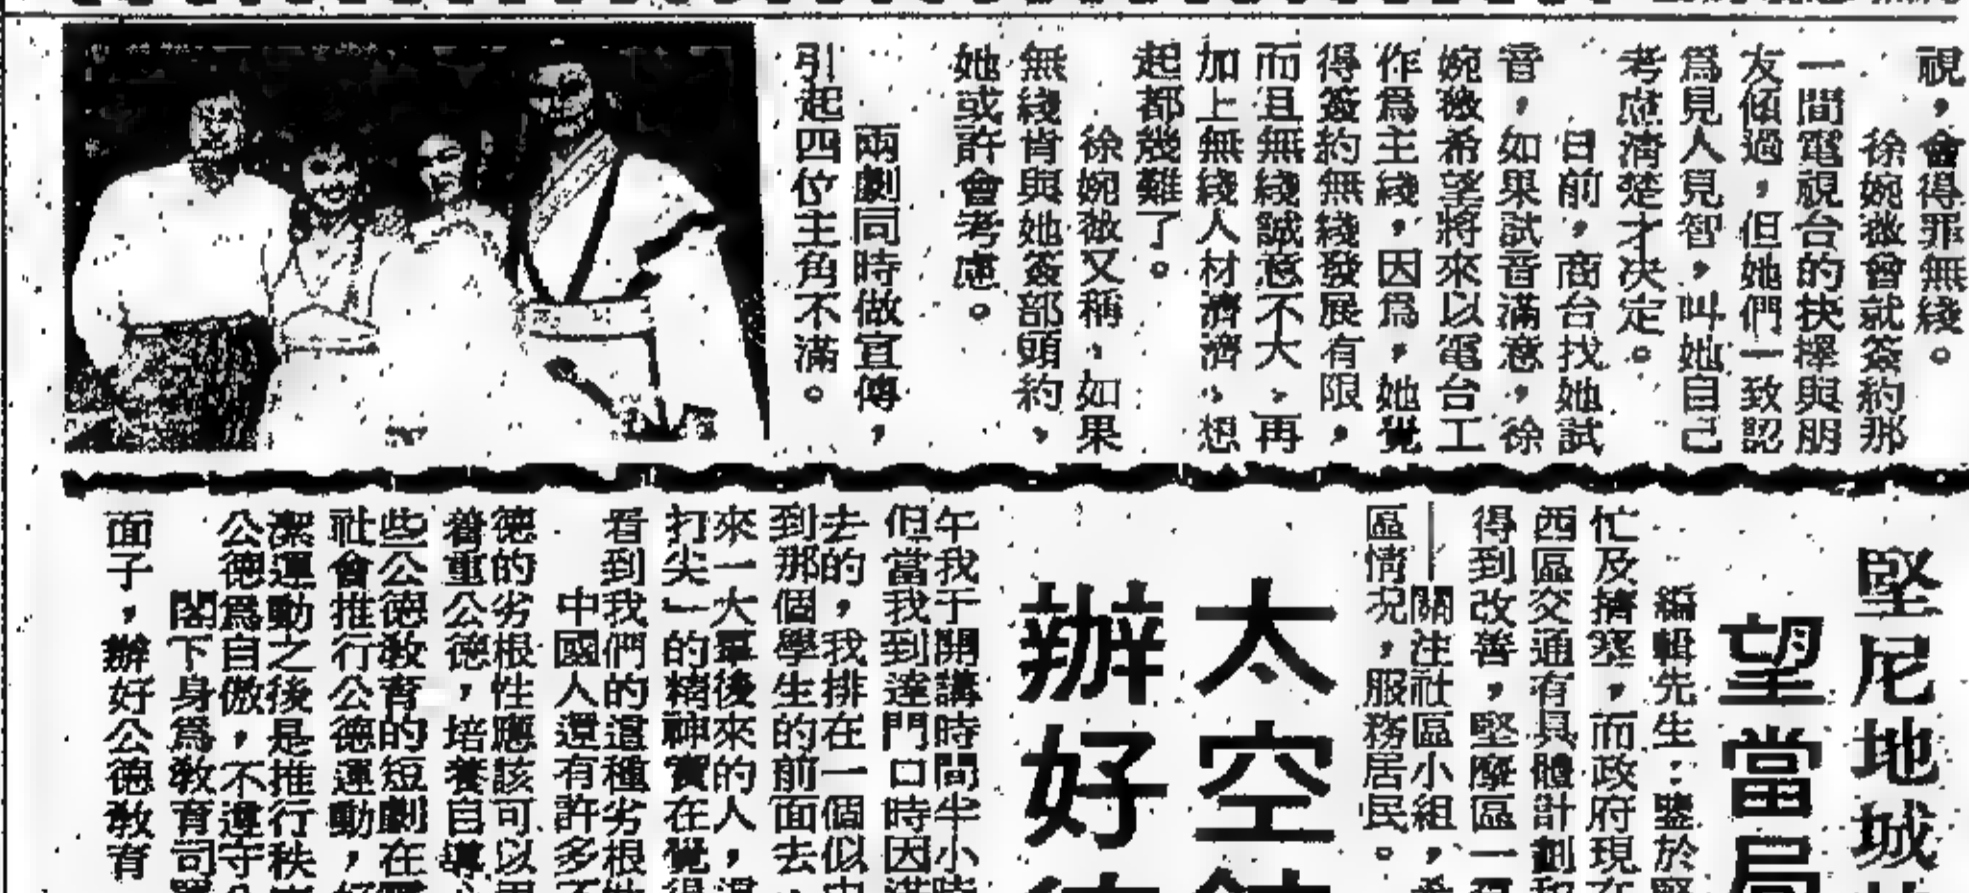 視，會得罪無綫。
徐婉薇曾就簽約那
一間電視台的抉擇與朋
友傾過，但她們一致認
爲見人見智，叫她自己
考慮清楚才决定。
日前，商台找她試
音，如果試音滿意，徐
婉薇希望將來以電台工
作爲主綫，因爲，她覺
得簽約無綫發展有限，
而且無綫誠意不大，再
加上無綫人材濟濟，想
起都幾難了。
徐婉薇又稱，如果
無綫肯與她簽部頭約，
她或許會考慮。
兩劇同時做宣傳，
引起四位主角不滿。
堅尼地城
望當局
編輯先生：鑒於堅
忙及擠塞，而政府現在
西區交通有具體計劃和
得到改善，堅摩區一
——關注社區小組，希
區情况，服務居民。
太空
辦好
午我于開講時間半小時
但當我到達門口時因滿
去的，我排在一個似
到那個學生的前面去，
來一大羣後來的人，還
打尖」的精神實在覺得
看到我們的這種劣根性
中國人還有許多不
德的劣根性應該可以用
着重公德，培養自尊心
些公德教育的短劇在
社會推行公德運動，好
潔運動之後是推行秩
公德爲自傲，不遵守公
閣下身爲教育司署
面子，辦好公德教育